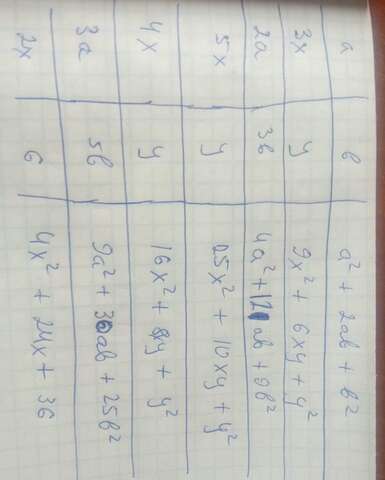 a b a² + 2ab + b²
3x y 9x² + 6xy + y²
2a 3b 4a² + 12ab + 9b²
5x y 25x² + 10xy + y²
4x y 16x² + 8xy + y²
3a 5b 9a² + 30ab + 25b²
2x 6 4x² + 24x + 36